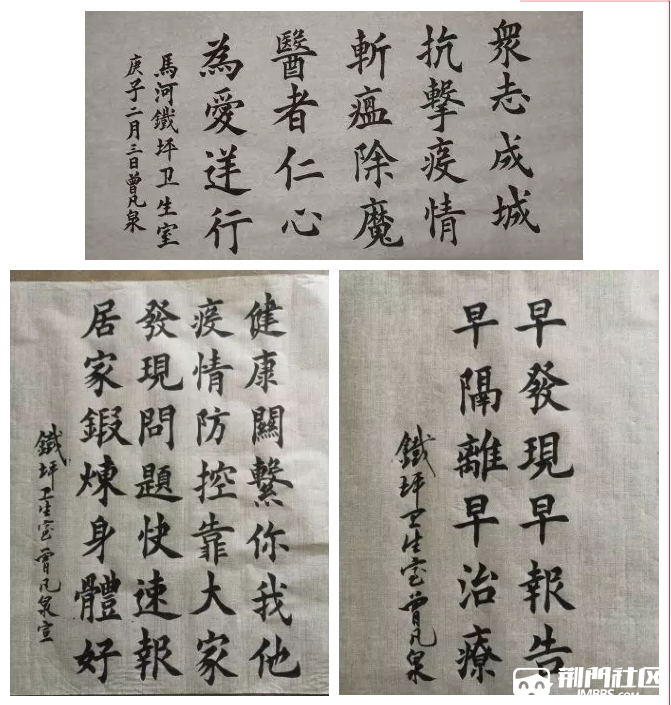 衆志成城
抗擊疫情
斬瘟除魔
醫者仁心
為愛逆行
馬河鐵坪卫生室
庚子二月三日曾凡泉
健康關繫你我他
疫情防控靠大家
發現問題快速報
居家鍜煉身體好
鐵坪卫生室曾凡泉宣
早發現早報告
早隔離早治療
鐵坪卫生室曾凡泉
荆門社区
JMBBS.COM